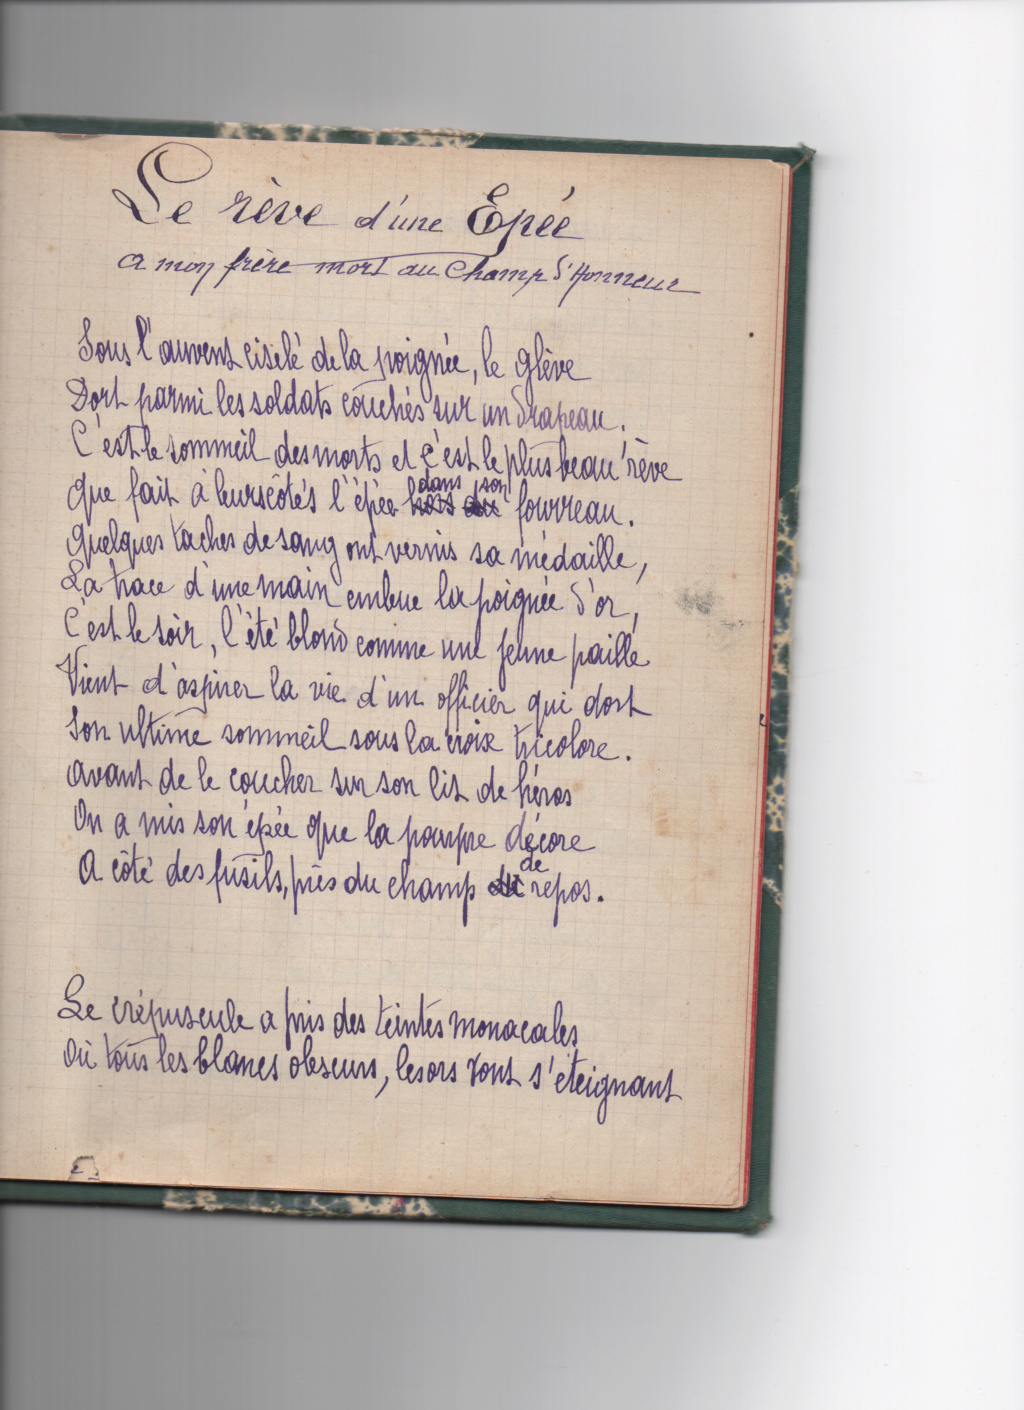 Le rêve d'une Epée
a mon frère mort au Champ d'Honneur
Sous l'auvent ciselé de la poignée, le glève
Dort parmi les soldats couchés sur un drapeau.
C'est le sommeil des morts et c'est le plus beau rêve
Que fait à leurs côtés l'épée hors du dans son fourreau.
Quelques taches de sang ont vernis sa médaille,
La trace d'une main embue la poignée d'or,
C'est le soir, l'été blond comme une jeune paille
Vient d'aspirer la vie d'un officier qui dort
Son ultime sommeil sous la croix tricolore.
Avant de le coucher sur son lit de héros
On a mis son épée que la pourpre décore
A côté des fusils, près du champ de repos.
Le crépuscule a pris des teintes monacales
Où tous les blancs obscurs, les ors vont s'éteignant